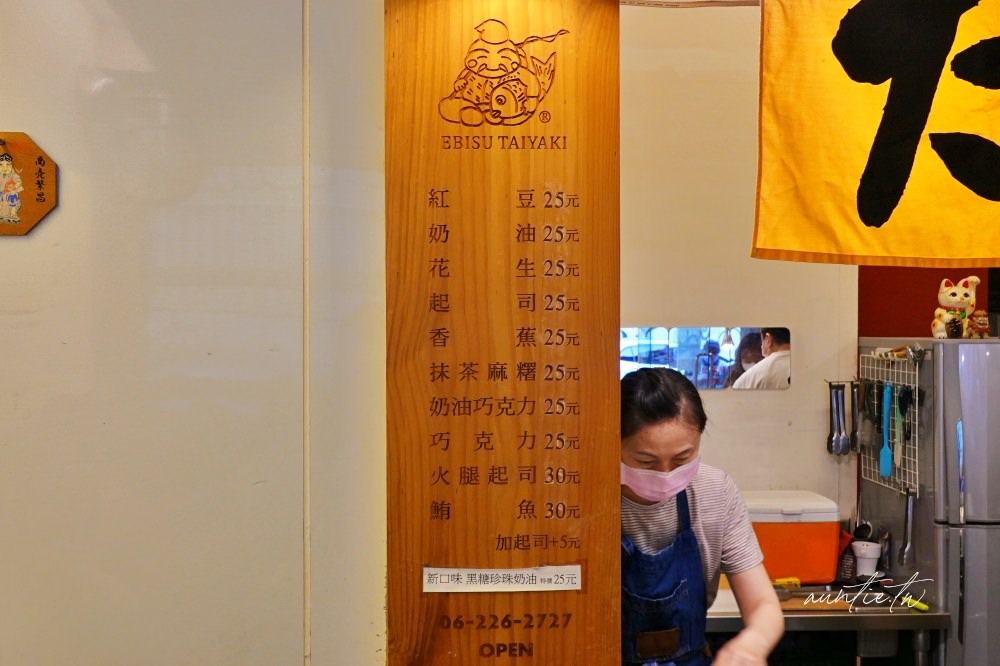 EBISU TAIYAKI
®
紅豆 25元
奶油 25元
花生 25元
起司 25元
香蕉 25元
抹茶麻糬 25元
奶油巧克力 25元
巧克力 25元
火腿起司 30元
鮪魚 30元
加起司+5元
新口味 黑糖珍珠奶油 特價 25元
06-226-2727
OPEN
商売繁昌
た
auntie.tw